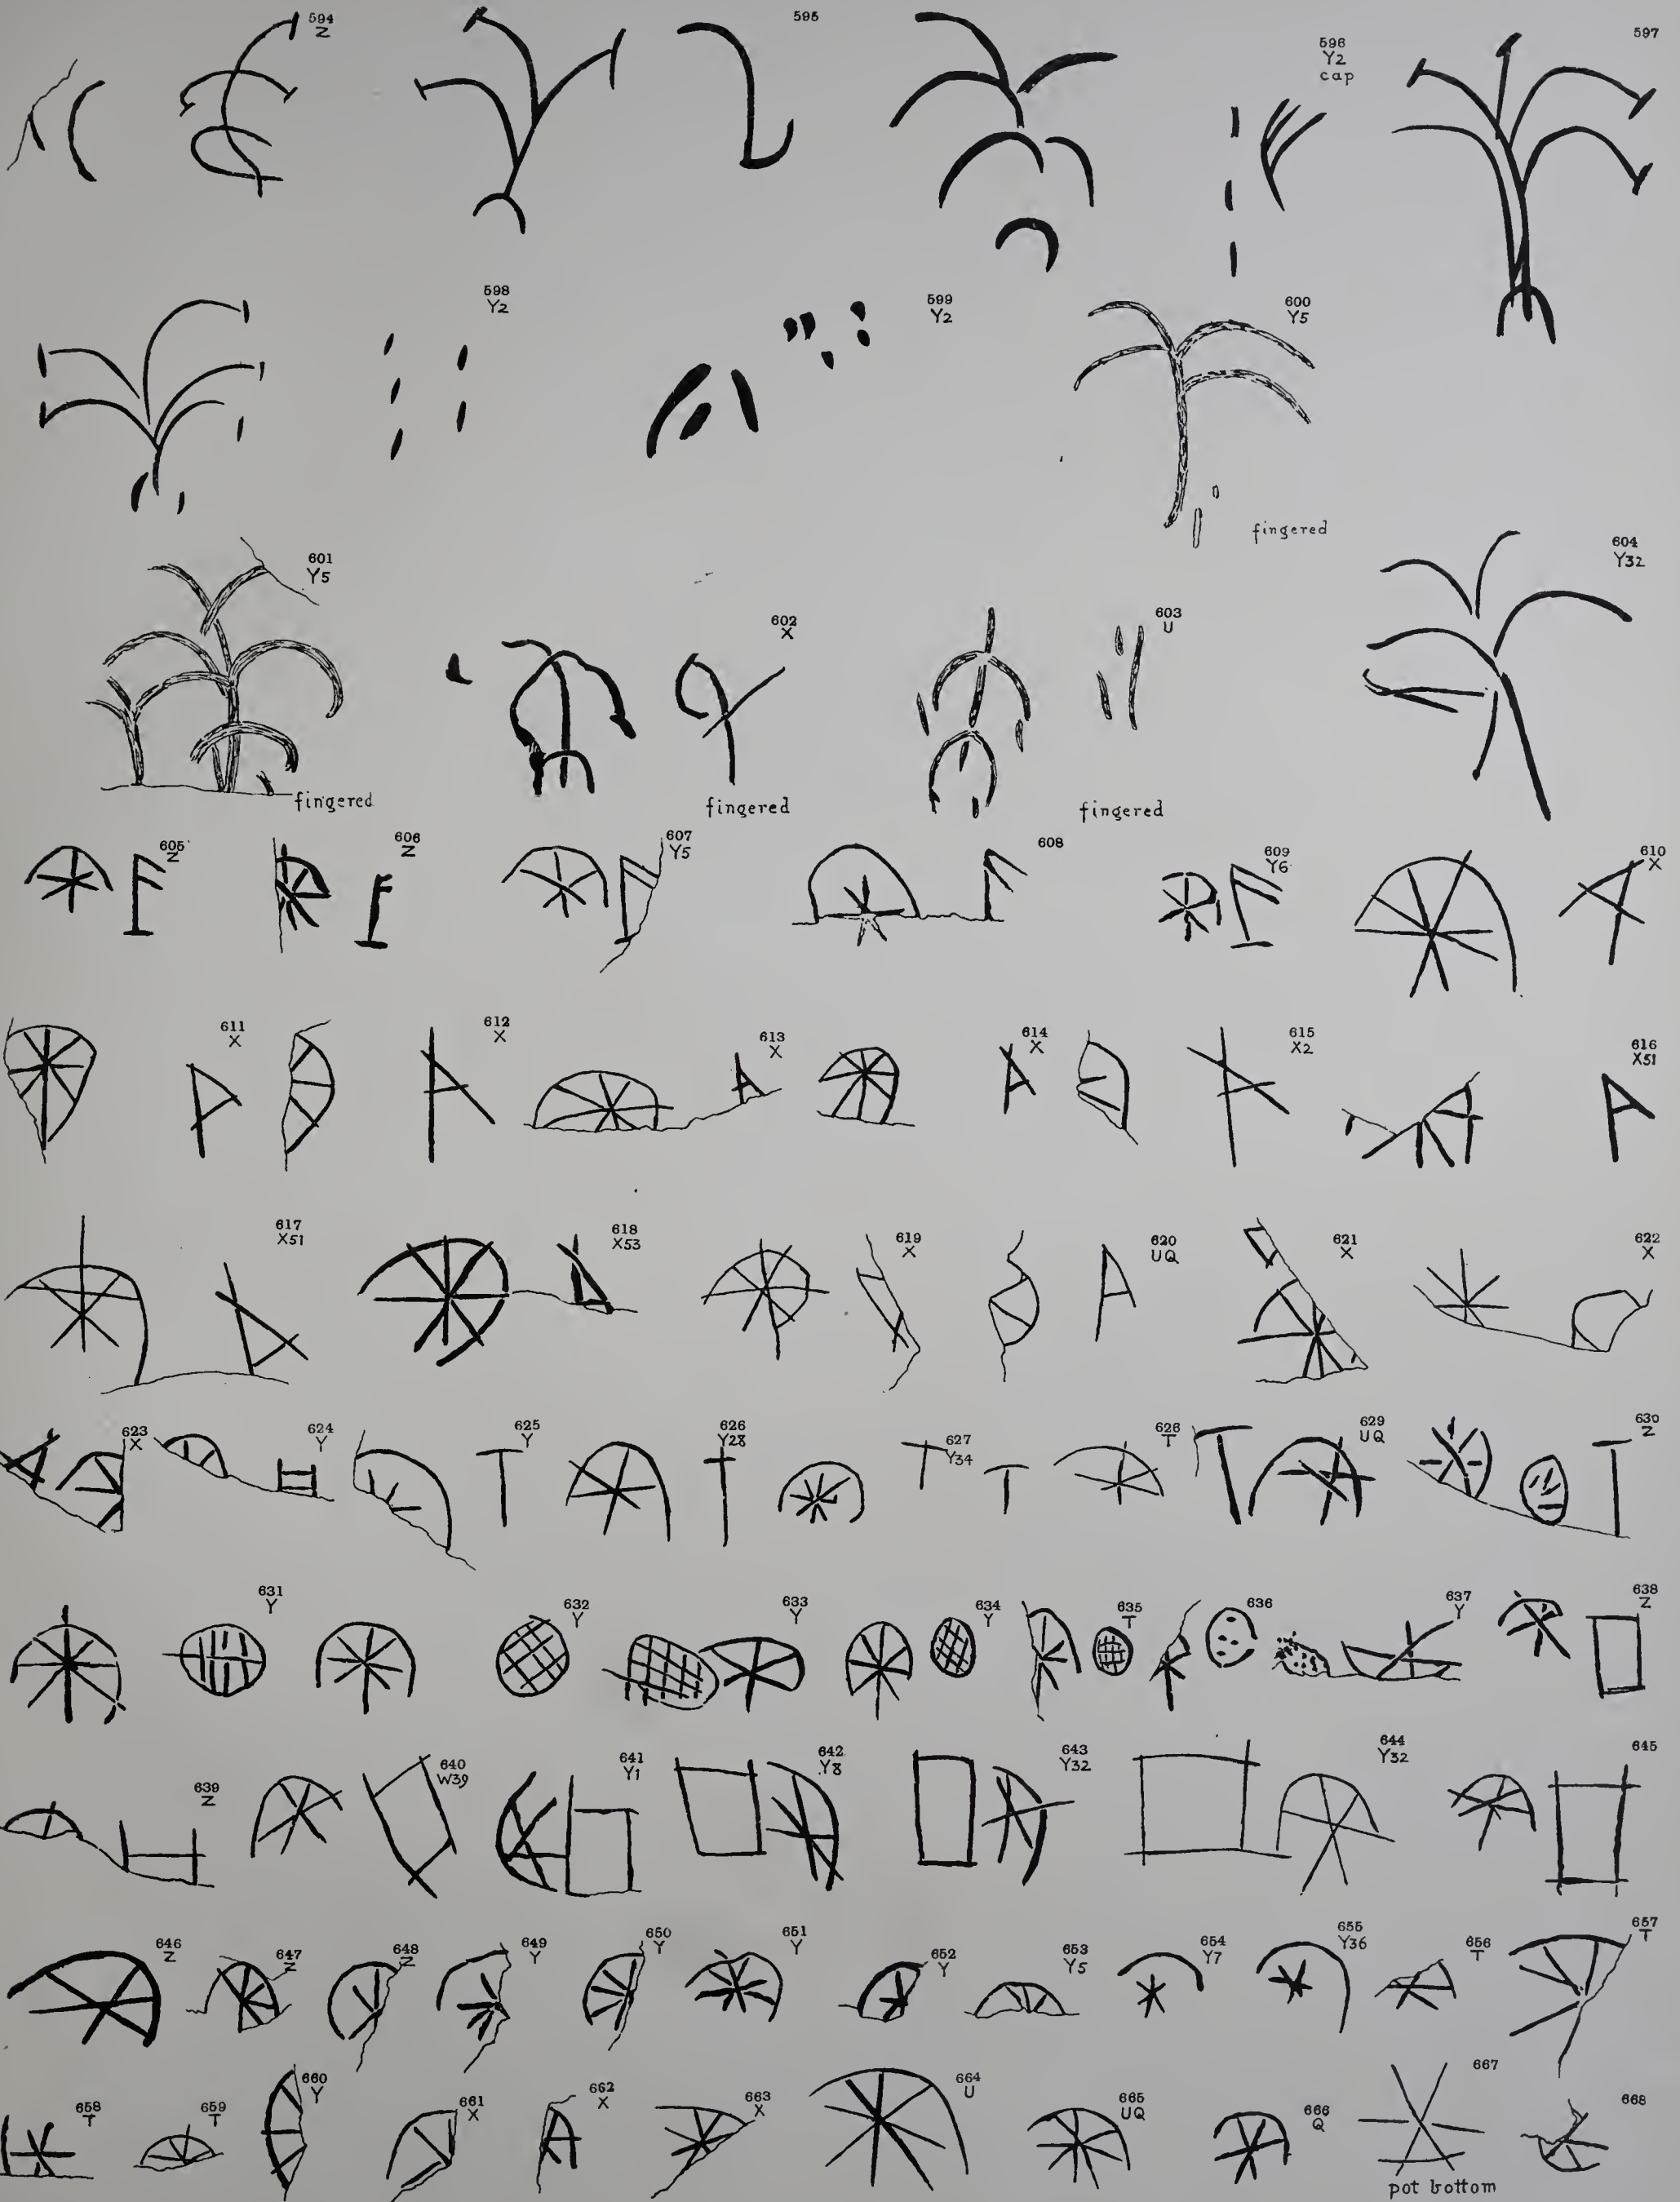 594
Z
595
596
Y2
cap
597
598
Y2
599
Y2
600
Y5
fingered
601
Y5
fingered
602
X
fingered
603
U
fingered
604
Y32
605
Z
606
Z
607
Y5
608
609
Y6
610
X
611
X
612
X
613
X
614
X
615
X2
616
X51
617
X51
618
X53
619
X
620
UQ
621
X
622
X
623
X
624
Y
625
Y
626
Y28
627
Y34
628
T
629
UQ
630
Z
631
Y
632
Y
633
Y
634
Y
635
T
636
637
Y
638
Z
639
Z
640
W39
641
Y1
642
Y8
643
Y32
644
Y32
645
646
Z
647
Z
648
Z
649
Y
650
Y
651
Y
652
Y
653
Y5
654
Y7
655
Y36
656
T
657
T
658
T
659
T
660
Y
661
X
662
X
663
X
664
U
665
UQ
666
Q
667
pot bottom
668